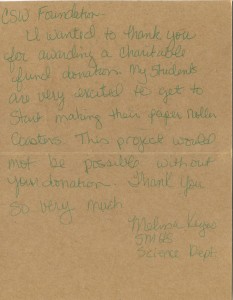 CSW Foundation
I wanted to thank you
for awarding a charitable
fund donation. My students
are very excited to get to
start making their paper roller
coasters. This project would
not be possible without
your donation. Thank you
so very much.
Melissa
Science Dept.